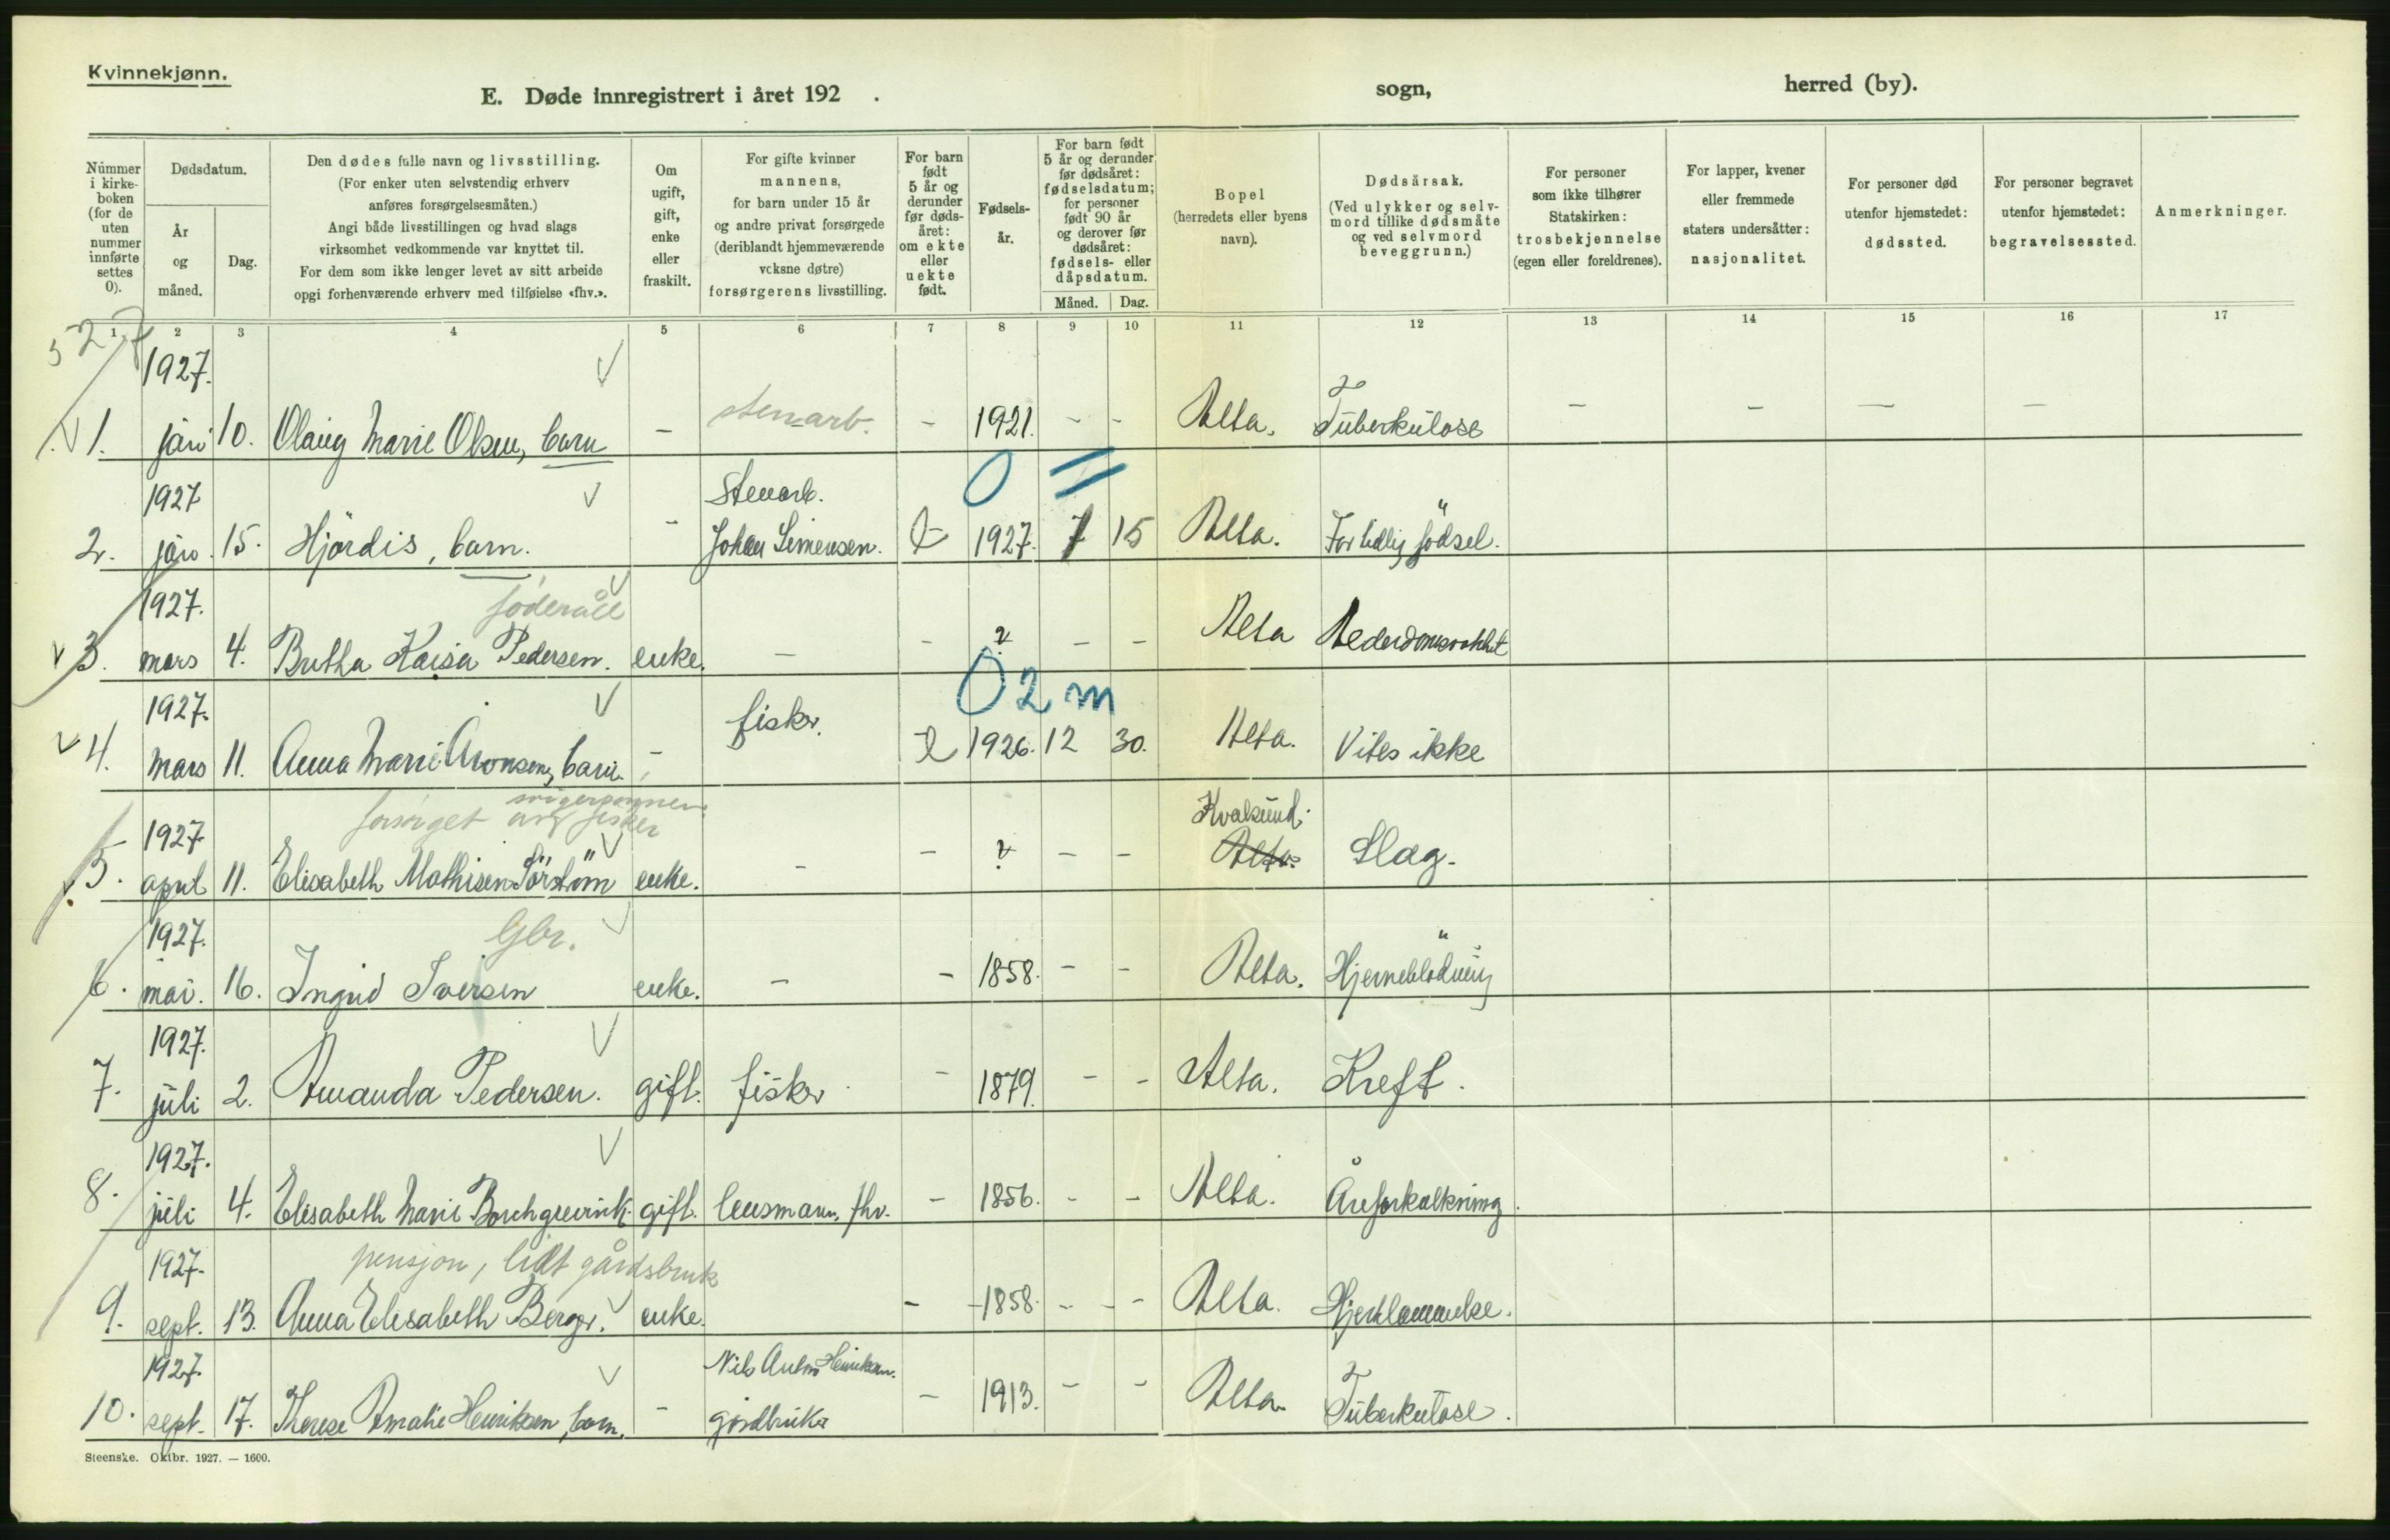 Kvinnekjønn.
E. Døde innregistrert i året 192 . sogn, herred (by).
Nummer i kirkeboken (for de uten nummer innførte settes 0).
Dødsdatum.
År og måned.
Dag.
Den dødes fulle navn og livsstilling.
(For enker uten selvstendig erhverv
anføres forsørgelsesmåten.)
Angi både livsstillingen og hvad slags
virksomhet vedkommende var knyttet til.
For dem som ikke lenger levet av sitt arbeide
opgi forhenværende erhverv med tilføielse «fhv.».
Om ugift, gift, enke eller fraskilt.
For gifte kvinner
mannens,
for barn under 15 år
og andre privat forsørgede
(deriblandt hjemmeværende
voksne døtre)
forsørgerens livsstilling.
For barn født 5 år og derunder før dødsåret: om ekte eller uekte født.
Fødselsår.
For barn født
5 år og derunder
før dødsåret:
fødselsdatum;
for personer
født 90 år
og derover før
dødsåret:
fødsels- eller
dåpsdatum.
Måned. Dag.
Bopel
(herredets eller byens
navn).
Dødsårsak.
(Ved ulykker og selv-
mord tillike dødsmåte
og ved selvmord
beveggrunn.)
For personer
som ikke tilhører
Statskirken:
trosbekjennelse
(egen eller foreldrenes).
For lapper, kvener
eller fremmede
staters undersåtter:
nasjonalitet.
For personer død
utenfor hjemstedet:
dødssted.
For personer begravet
utenfor hjemstedet:
begravelsessted.
Anmerkninger.
1 2 3 4 5 6 7 8 9 10 11 12 13 14 15 16 17
527
1927.
1. jan 10. Olaug Marie Olsen, barn - stenarb. - 1921. - - Alta. Tuberkulose - - - -
0 =
1927 Stenarb.
2. jan. 15. Hjördis, barn. - Johan Simensen. E 1927. 1 15 Alta. For tidlig födsel.
1927. föderåd
3. mars 4. Kaisa Pedersen. enke. - - ? - - Alta Alderdomssvakhet
0 2 m
1927. fisker.
4. mars 11. Anna Marie Aronsen, barn. - 1926. 12 30. Alta. Vites ikke
forsørget av svigersønnen fisker
1927 Kvalsund.
5. april 11. Elisabeth Mathisen enke. - - ? - - Alta. Slag.
1927. Gbr.
6. mai. 16. Ingrid Iversen enke. - - 1858. - - Alta. Hjerneblödning
1927.
7. juli 2. Amanda Pedersen. gift. fisker - 1879. - - Alta. Kreft.
1927.
8. juli 4. Elisabeth Marie Borchgrevink gift. lensmann, fhv. - 1856. - - Alta. Åreforkalkning.
1927. pensjon, lidt gårdsbruk
9. sept. 13. Anna Elisabeth Berger. enke. - 1858. - - Alta. Hjertelammelse.
1927. Nils Anton Henriksen.
10. sept. 17. Therese Amalie Henriksen, barn. - gårdbruker - 1913. - - Alta. Tuberkulose.
Steenske. Oktbr. 1927. — 1600.